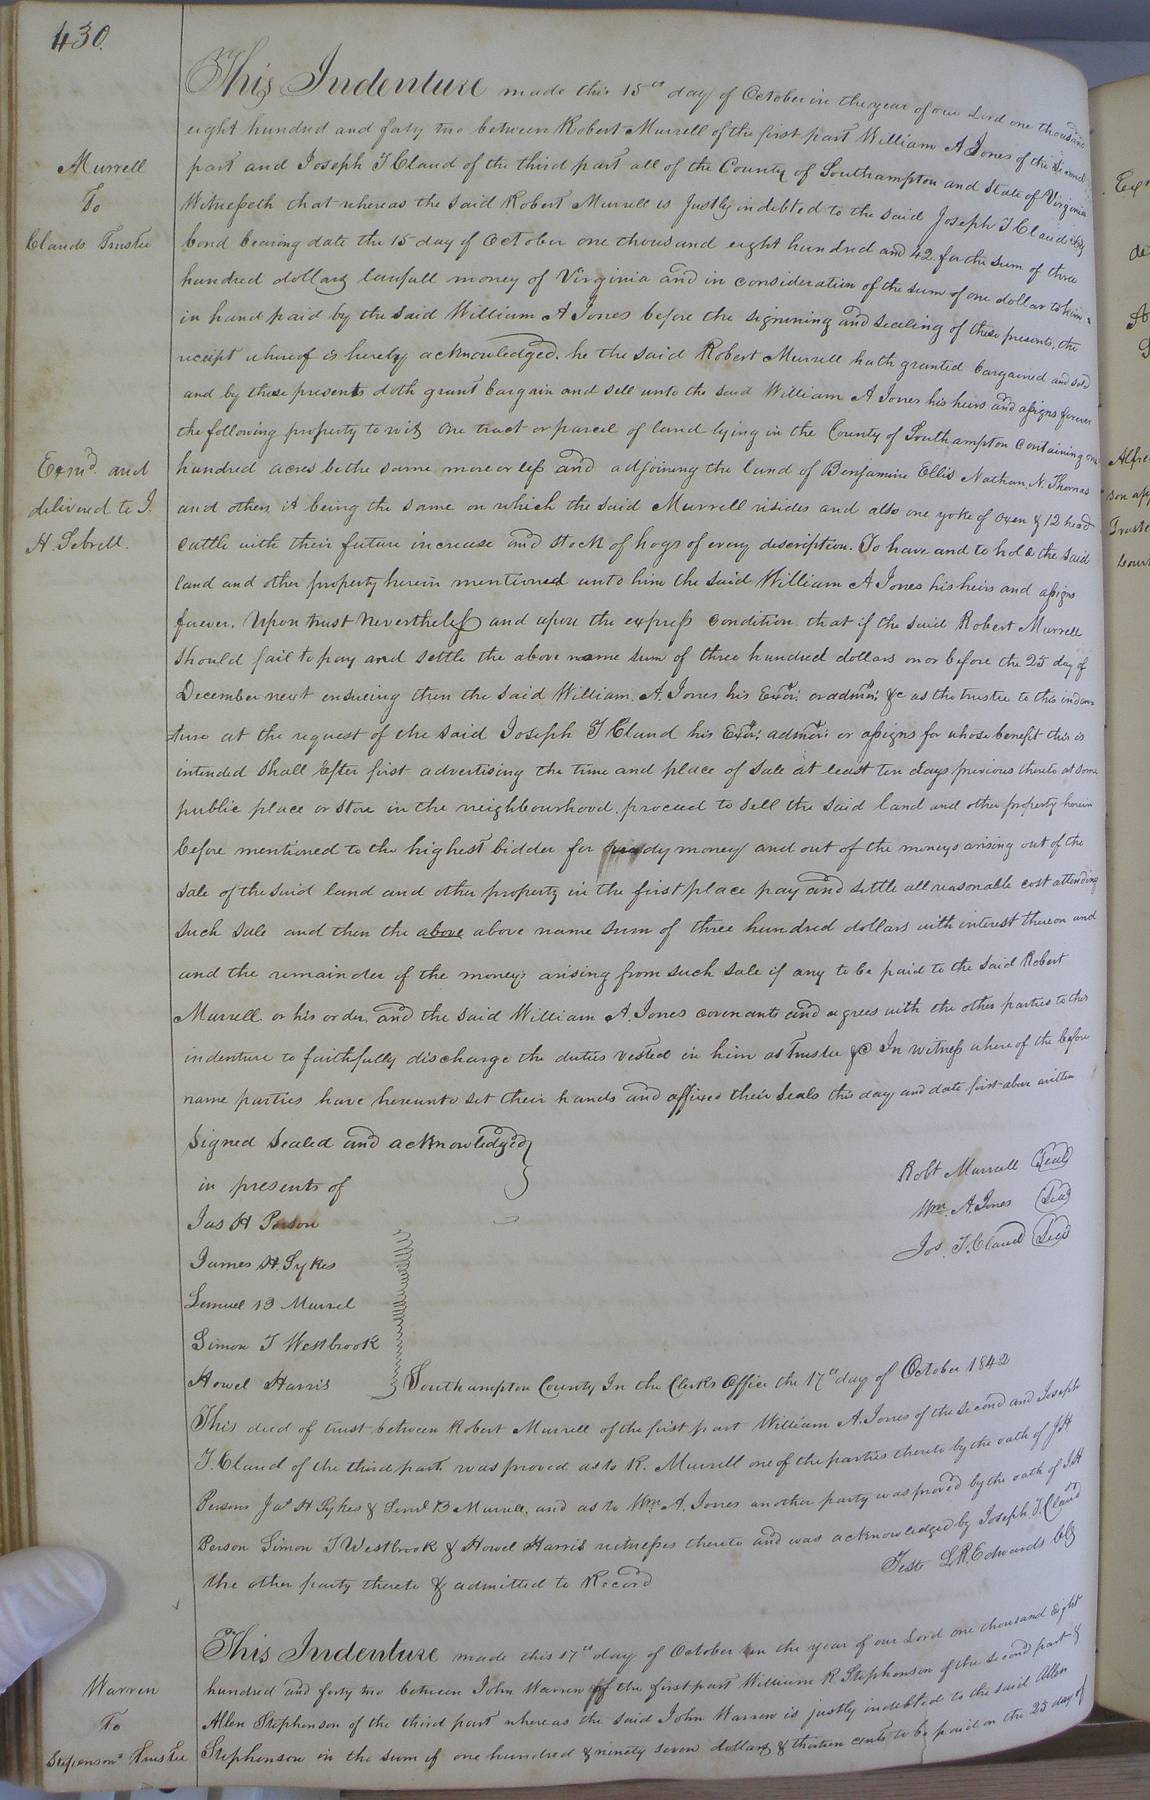 430.
This Indenture made this 15th day of October in the year of our Lord one thousand
eight hundred and forty two between Robert Murrell of the first part William A Jones of the second
Murrell
To
Clauds Trustee
part and Joseph T Claud of the third part all of the County of Southampton and State of Virginia
Witnesseth that whereas the said Robert Murrell is Justly indebted to the said Joseph T Claud by
bond bearing date the 15 day of October one thousand eight hundred and 42 for the sum of three
hundred dollars lawfull money of Virginia and in consideration of the sum of one dollar to him
in hand paid by the said William A Jones before the signining and sealing of these presents, the
receipt whereof is hereby acknowledged. he the said Robert Murrell hath granted bargained and sold
and by these presents doth grant bargain and sell unto the said William A Jones his heirs and assigns forever
the following property to wit, One tract or parcel of land lying in the County of Southampton containing one
Exmd. and
delivered to J.
H. Sebrell.
hundred acres be the same more or less and adjoining the land of Benjamine Ellis Nathan N. Thomas
and others it being the same on which the said Murrell risides and also one yoke of oxen & 12 head
cattle with their future increase and stock of hogs of every description. To have and to hold the said
land and other property herein mentioned unto him the said William A Jones his heirs and assigns
forever. Upon trust Nevertheless and upon the express condition that if the said Robert Murrell
should fail to pay and settle the above name sum of three hundred dollars on or before the 25 day of
December next ensueing then the said William. A. Jones his Exor: or admor: &c as the trustee to this inden
ture at the request of the said Joseph T Claud his Exor: admor: or assigns for whose benefit this is
intended shall after first advertising the time and place of sale at least ten days previous thereto at some
public place or store in the neighbourhood. proceed to sell the said land and other property herein
before mentioned to the highest bidder for ready money and out of the moneys arising out of the
sale of the said land and other property in the first place pay and settle all reasonable cost attending
such sale and then the above above name sum of three hundred dollars with interest thereon and
and the remainder of the money arising from such sale if any to be paid to the said Robert
Murrell or his order, and the said William A. Jones covenants and agrees with the other parties to this
indenture to faithfully discharge the duties vested in him as Trustee &c In witness whereof the before
name parties have hereunto set their hands and affixed their seals this day and date first above written
Signed Sealed and acknowledged
in presents of
Jas H Person
James H. Sykes
Samuel B Murrel
Simon T Westbrook
Howel Harris
Robt Murrell Seal
Wm. A. Jones Seal
Jos. T. Claud Seal
Southampton County In the Clerks Office the 17th day of October 1842
This deed of trust between Robert Murrell of the first part William A. Jones of the second and Joseph
T. Claud of the third part was proved as to R. Murrell one of the parties thereto by the oath of J H
Persons Jas H Sykes & Saml B Murrell, and as to Wm. A. Jones another party was proved by the oath of J H
Person Simon T Westbrook & Howel Harris witnesses thereto and was acknowledged by Joseph T. Claud
the other party thereto & admitted to Record
Teste L. R. Edwards Clk
This Indenture made this 17th day of October in the year of our Lord one thousand Eight
Warren
To
Stephenson's Trustee
hundred and forty two between John Warren of the first part William R Stephenson of the second part &
Allen Stephenson of the third part whereas the said John Warren is justly indebted to the said Allen
Stephenson in the sum of one hundred & ninety seven dollars & thirteen cents to be paid on the 25 day of